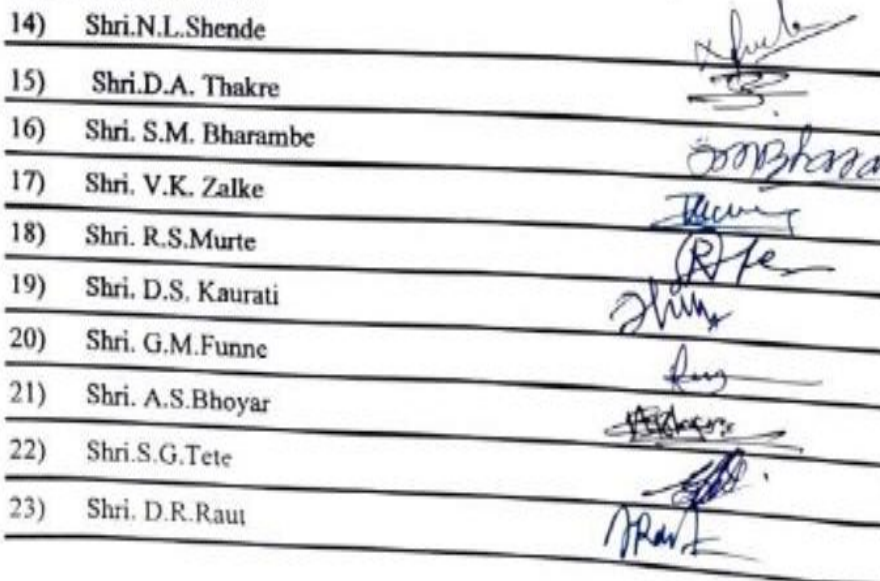 14) Shri.N.L.Shende
15) Shri.D.A. Thakre
16) Shri. S.M. Bharambe
17) Shri. V.K. Zalke
18) Shri. R.S.Murte
19) Shri. D.S. Kaurati
20) Shri. G.M.Funne
21) Shri. A.S.Bhoyar
22) Shri.S.G.Tete
23) Shri. D.R.Raut